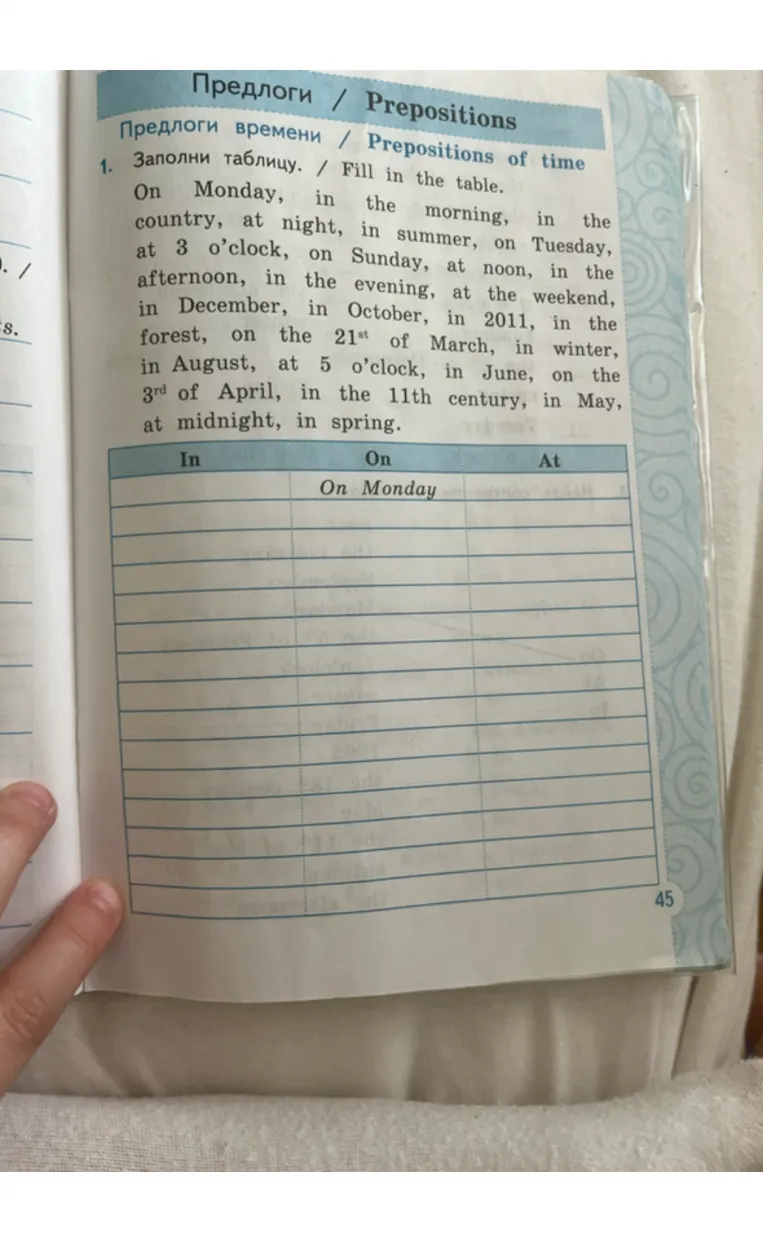 Предлоги / Prepositions
Предлоги времени / Prepositions of time
1. Заполни таблицу. / Fill in the table.
On Monday, in the morning, in the
country, at night, in summer, on Tuesday,
at 3 o'clock, on Sunday, at noon, in the
afternoon, in the evening, at the weekend,
in December, in October, in 2011, in the
forest, on the 21st of March, in winter,
in August, at 5 o'clock, in June, on the
3rd of April, in the 11th century, in May,
at midnight, in spring.
In On At
On Monday
45
. /
s.